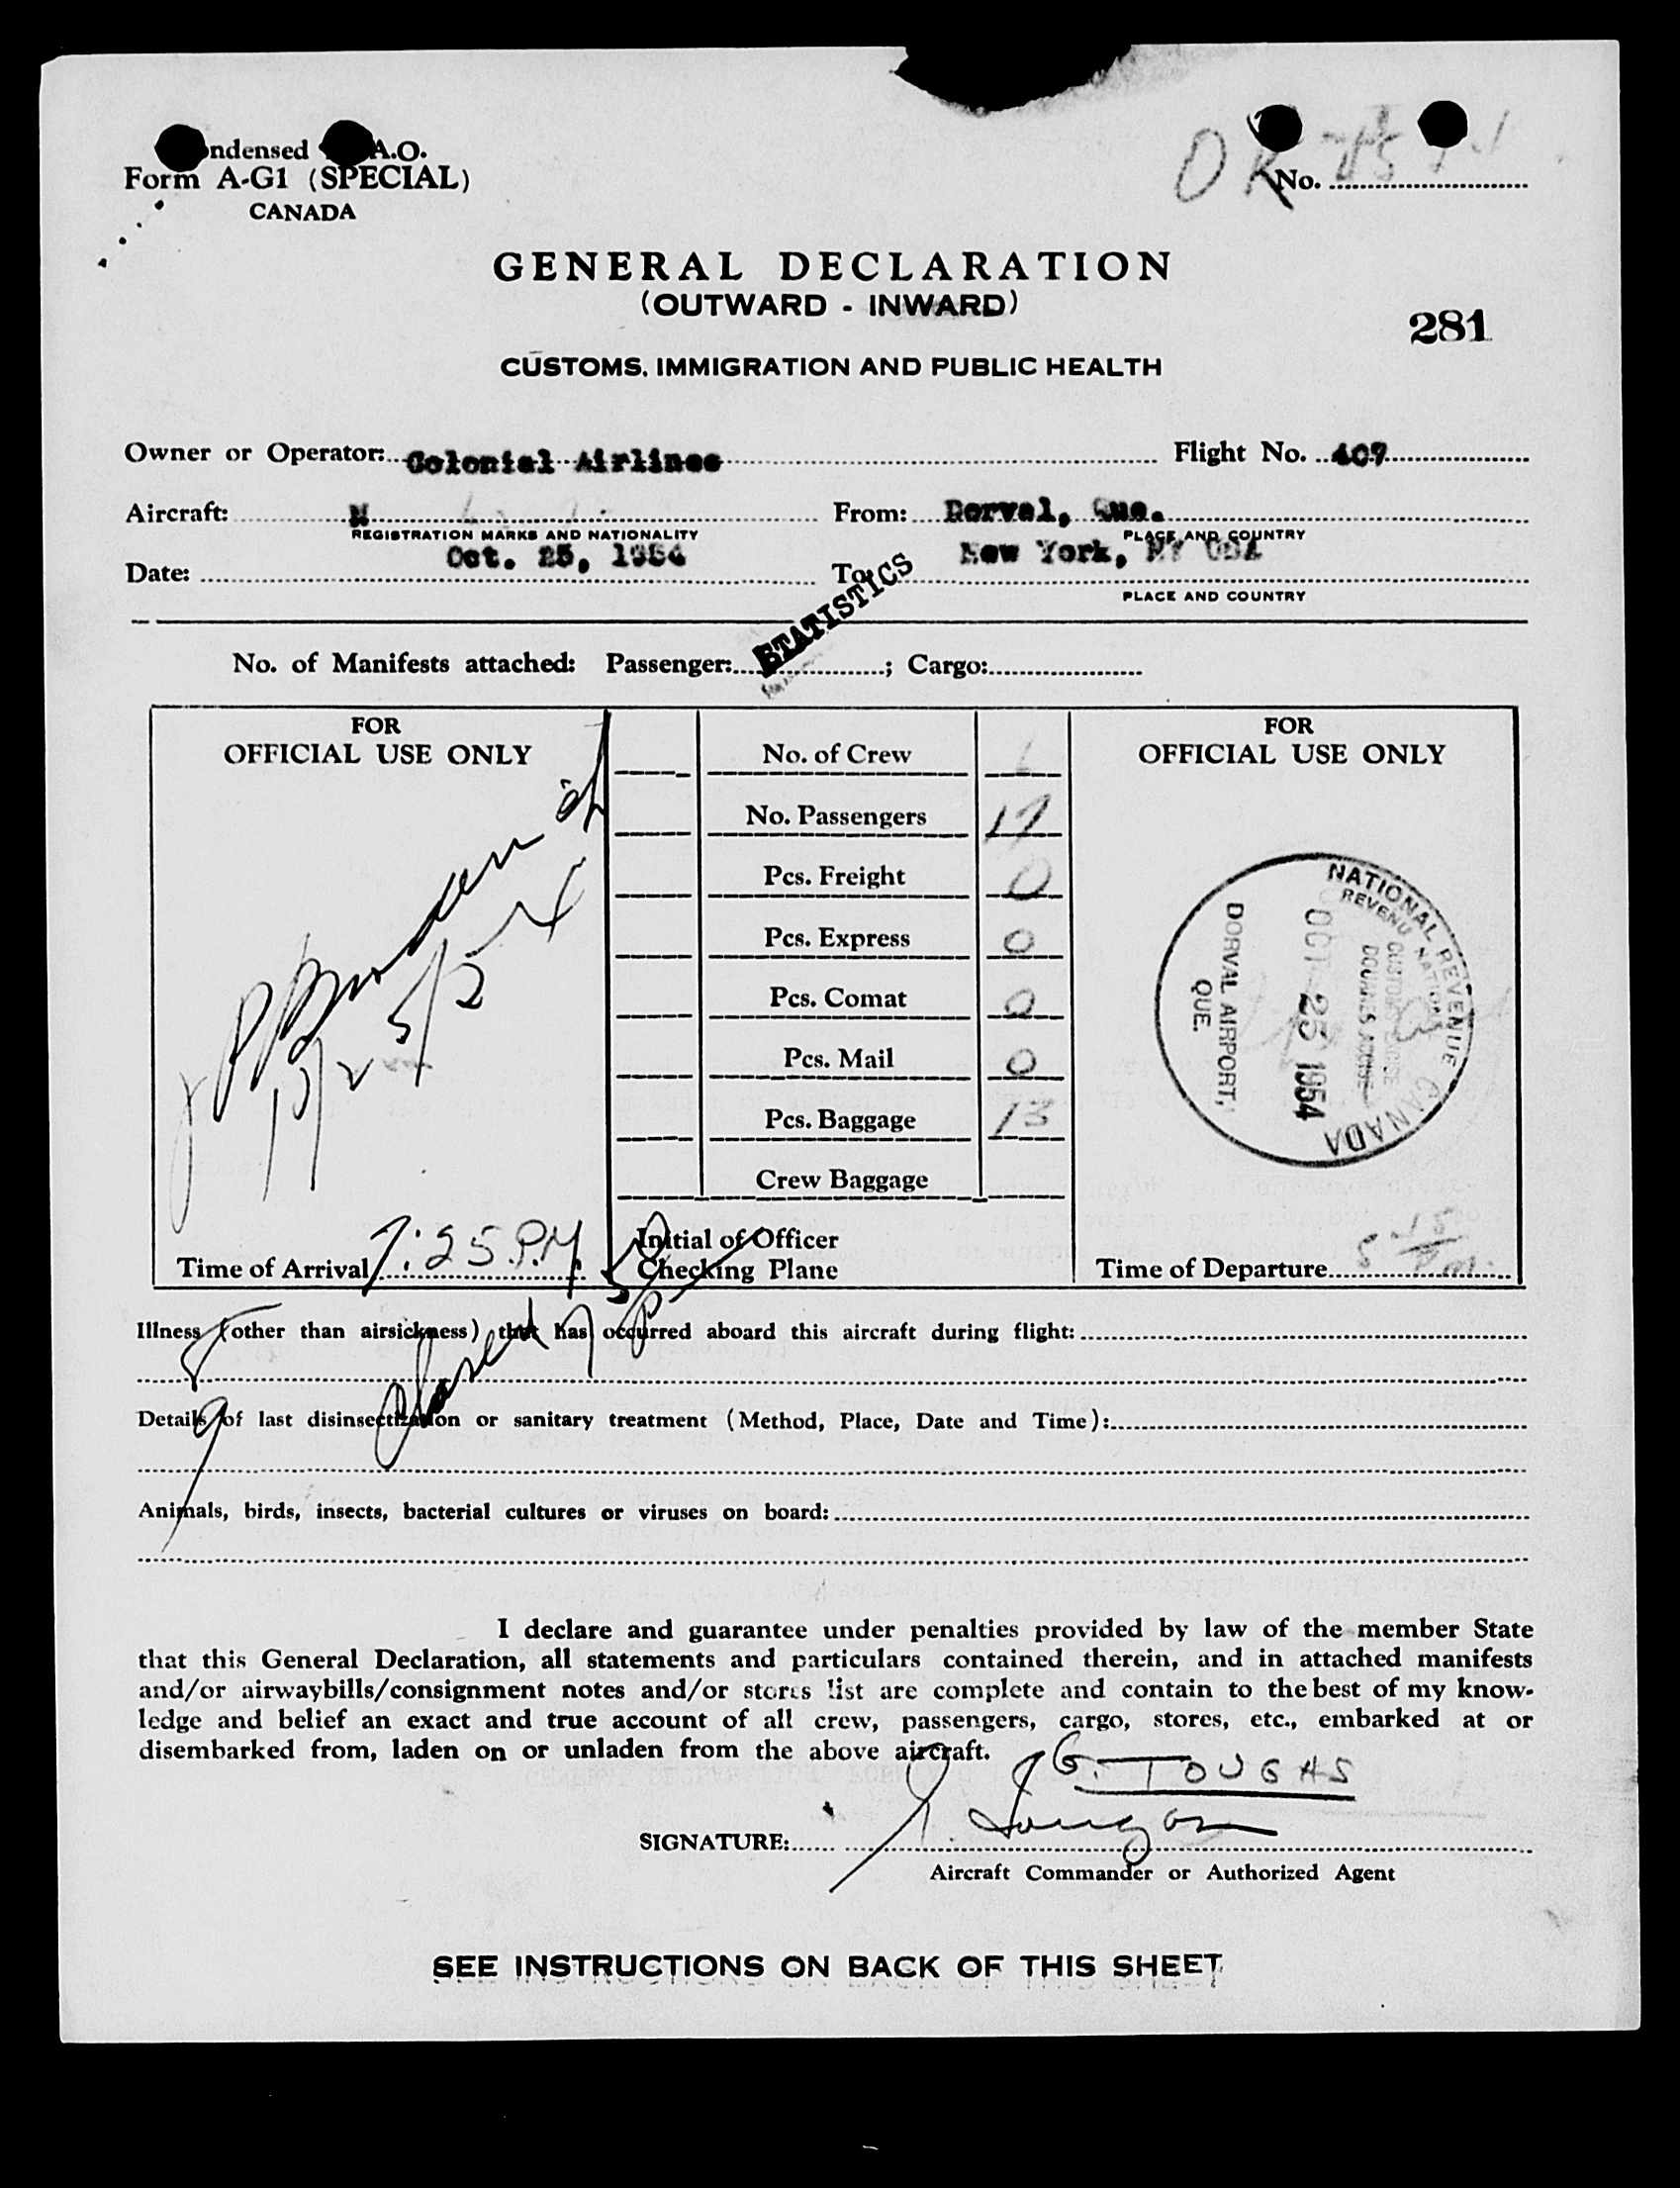 ndensed A.O.
Form A-G1 (SPECIAL)
CANADA
OK
No.
GENERAL DECLARATION
(OUTWARD - INWARD)
281
CUSTOMS, IMMIGRATION AND PUBLIC HEALTH
Owner or Operator: Colonial Airlines Flight No. 409
Aircraft: N From: Dorval, Que.
REGISTRATION MARKS AND NATIONALITY PLACE AND COUNTRY
Date: Oct. 25, 1954 To: New York, NY USA
PLACE AND COUNTRY
STATISTICS
No. of Manifests attached: Passenger: ; Cargo:
FOR
OFFICIAL USE ONLY
Time of Arrival 7:25 P.M.
No. of Crew
No. Passengers 17
Pcs. Freight 0
Pcs. Express 0
Pcs. Comat 0
Pcs. Mail 0
Pcs. Baggage 13
Crew Baggage
Initial of Officer
Checking Plane
FOR
OFFICIAL USE ONLY
NATIONAL REVENUE CANADA
REVENU NATIONAL
OCT 25 1954
DORVAL AIRPORT,
QUE.
Time of Departure 5 15 P.M.
Illness (other than airsickness) that has occurred aboard this aircraft during flight:
Details of last disinsectization or sanitary treatment (Method, Place, Date and Time):
Animals, birds, insects, bacterial cultures or viruses on board:
I declare and guarantee under penalties provided by law of the member State
that this General Declaration, all statements and particulars contained therein, and in attached manifests
and/or airwaybills/consignment notes and/or stores list are complete and contain to the best of my know-
ledge and belief an exact and true account of all crew, passengers, cargo, stores, etc., embarked at or
disembarked from, laden on or unladen from the above aircraft.
G. TOUGAS
SIGNATURE:
Aircraft Commander or Authorized Agent
SEE INSTRUCTIONS ON BACK OF THIS SHEET